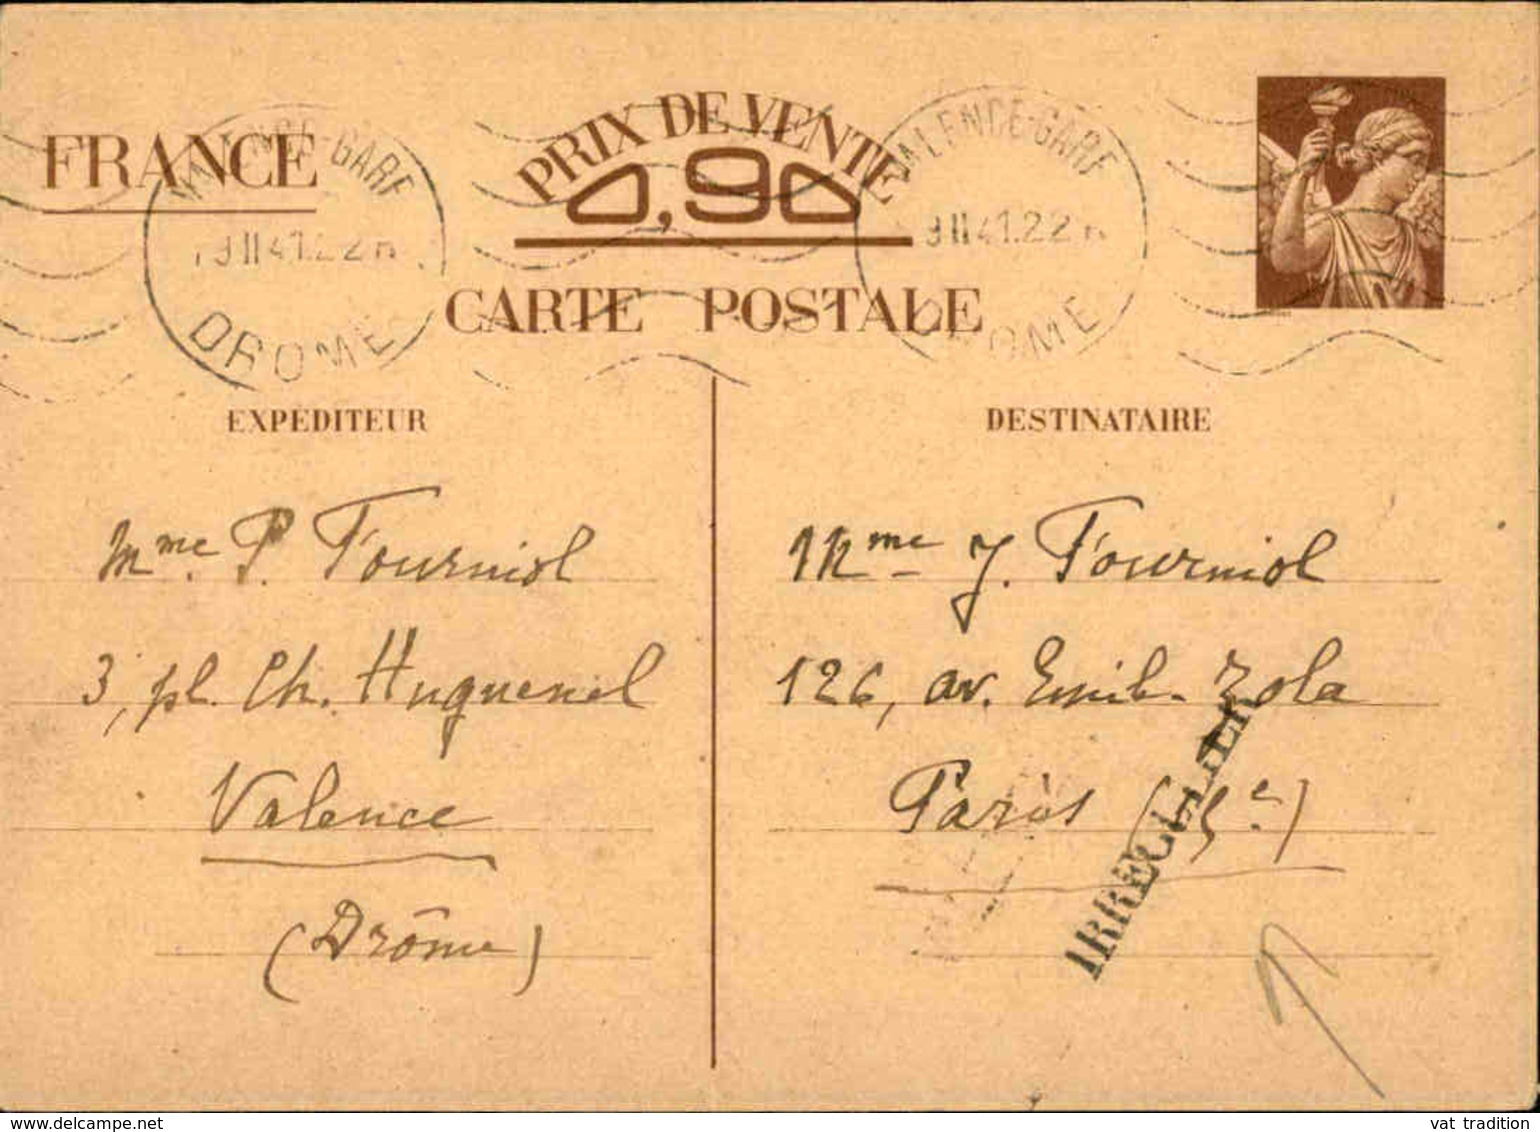 FRANCE
PRIX DE VENTE
0,90
CARTE POSTALE
VALENCE-GARE
19 II 41.22 H
DROME
VALENCE-GARE
9 II 41.22 H
DROME
EXPEDITEUR
Mme P. Fourniol
3, pl. Ch. Huguenel
Valence
(Drôme)
DESTINATAIRE
Mme J. Fourniol
126, av. Emile Zola
Paris (15e)
IRREGULIER
vat tradition